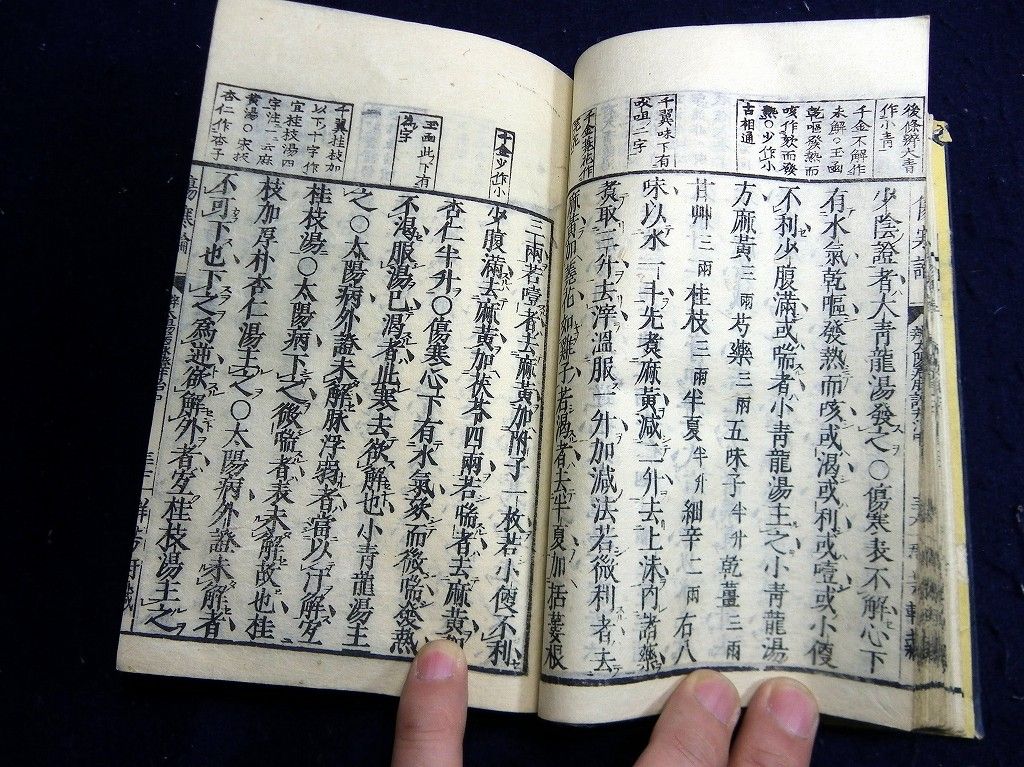 後條併大青
作小青
千金不解作
未解○玉函
乾嘔發熱而
咳作欬而發
熱○少作小
古相通
千翼味下有
㕮咀二字
千金蕘花作
芫花
少陰證者大青龍湯發之○傷寒表不解心下
有水氣乾嘔發熱而咳或渴或利或噎或小便
不利少腹滿或喘者小青龍湯主之小青龍湯
方麻黃三兩芍藥三兩五味子半升乾薑三兩
甘艸三兩桂枝三兩半夏半升細辛二兩右八
味以水一斗先煮麻黃減二升去上沫內諸藥
煮取三升去滓溫服一升加減法若微利者去
麻黃加蕘花如雞子若渴者去半夏加括蔞根
千金少作小
玉函此下有
爲字
千翼桂枝加
以下十字作
宜桂枝湯四
字注一云麻
黃湯○宋板
杏仁作杏子
三兩若噎者去麻黃加附子一枚若小便不利
少腹滿去麻黃加茯苓四兩若喘者去麻黃
杏仁半升○傷寒心下有水氣欬而微喘發熱
不渴服湯已渴者此寒去欲解也小青龍湯主
之○太陽病外證未解脈浮弱者當以汗解宜
桂枝湯○太陽病下之後喘者表未解故也桂
枝加厚朴杏仁湯主之○太陽病外證未解者
不可下也下之爲逆欲解外者宜桂枝湯主之
傷寒論